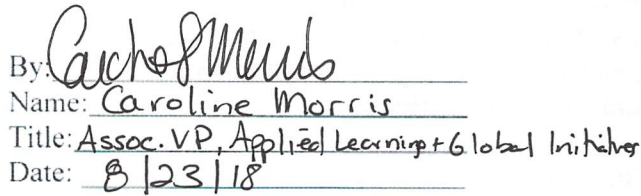 By:
Name: Caroline Morris
Title: Assoc. VP, Applied Learning + Global Initiatives
Date: 8/23/18